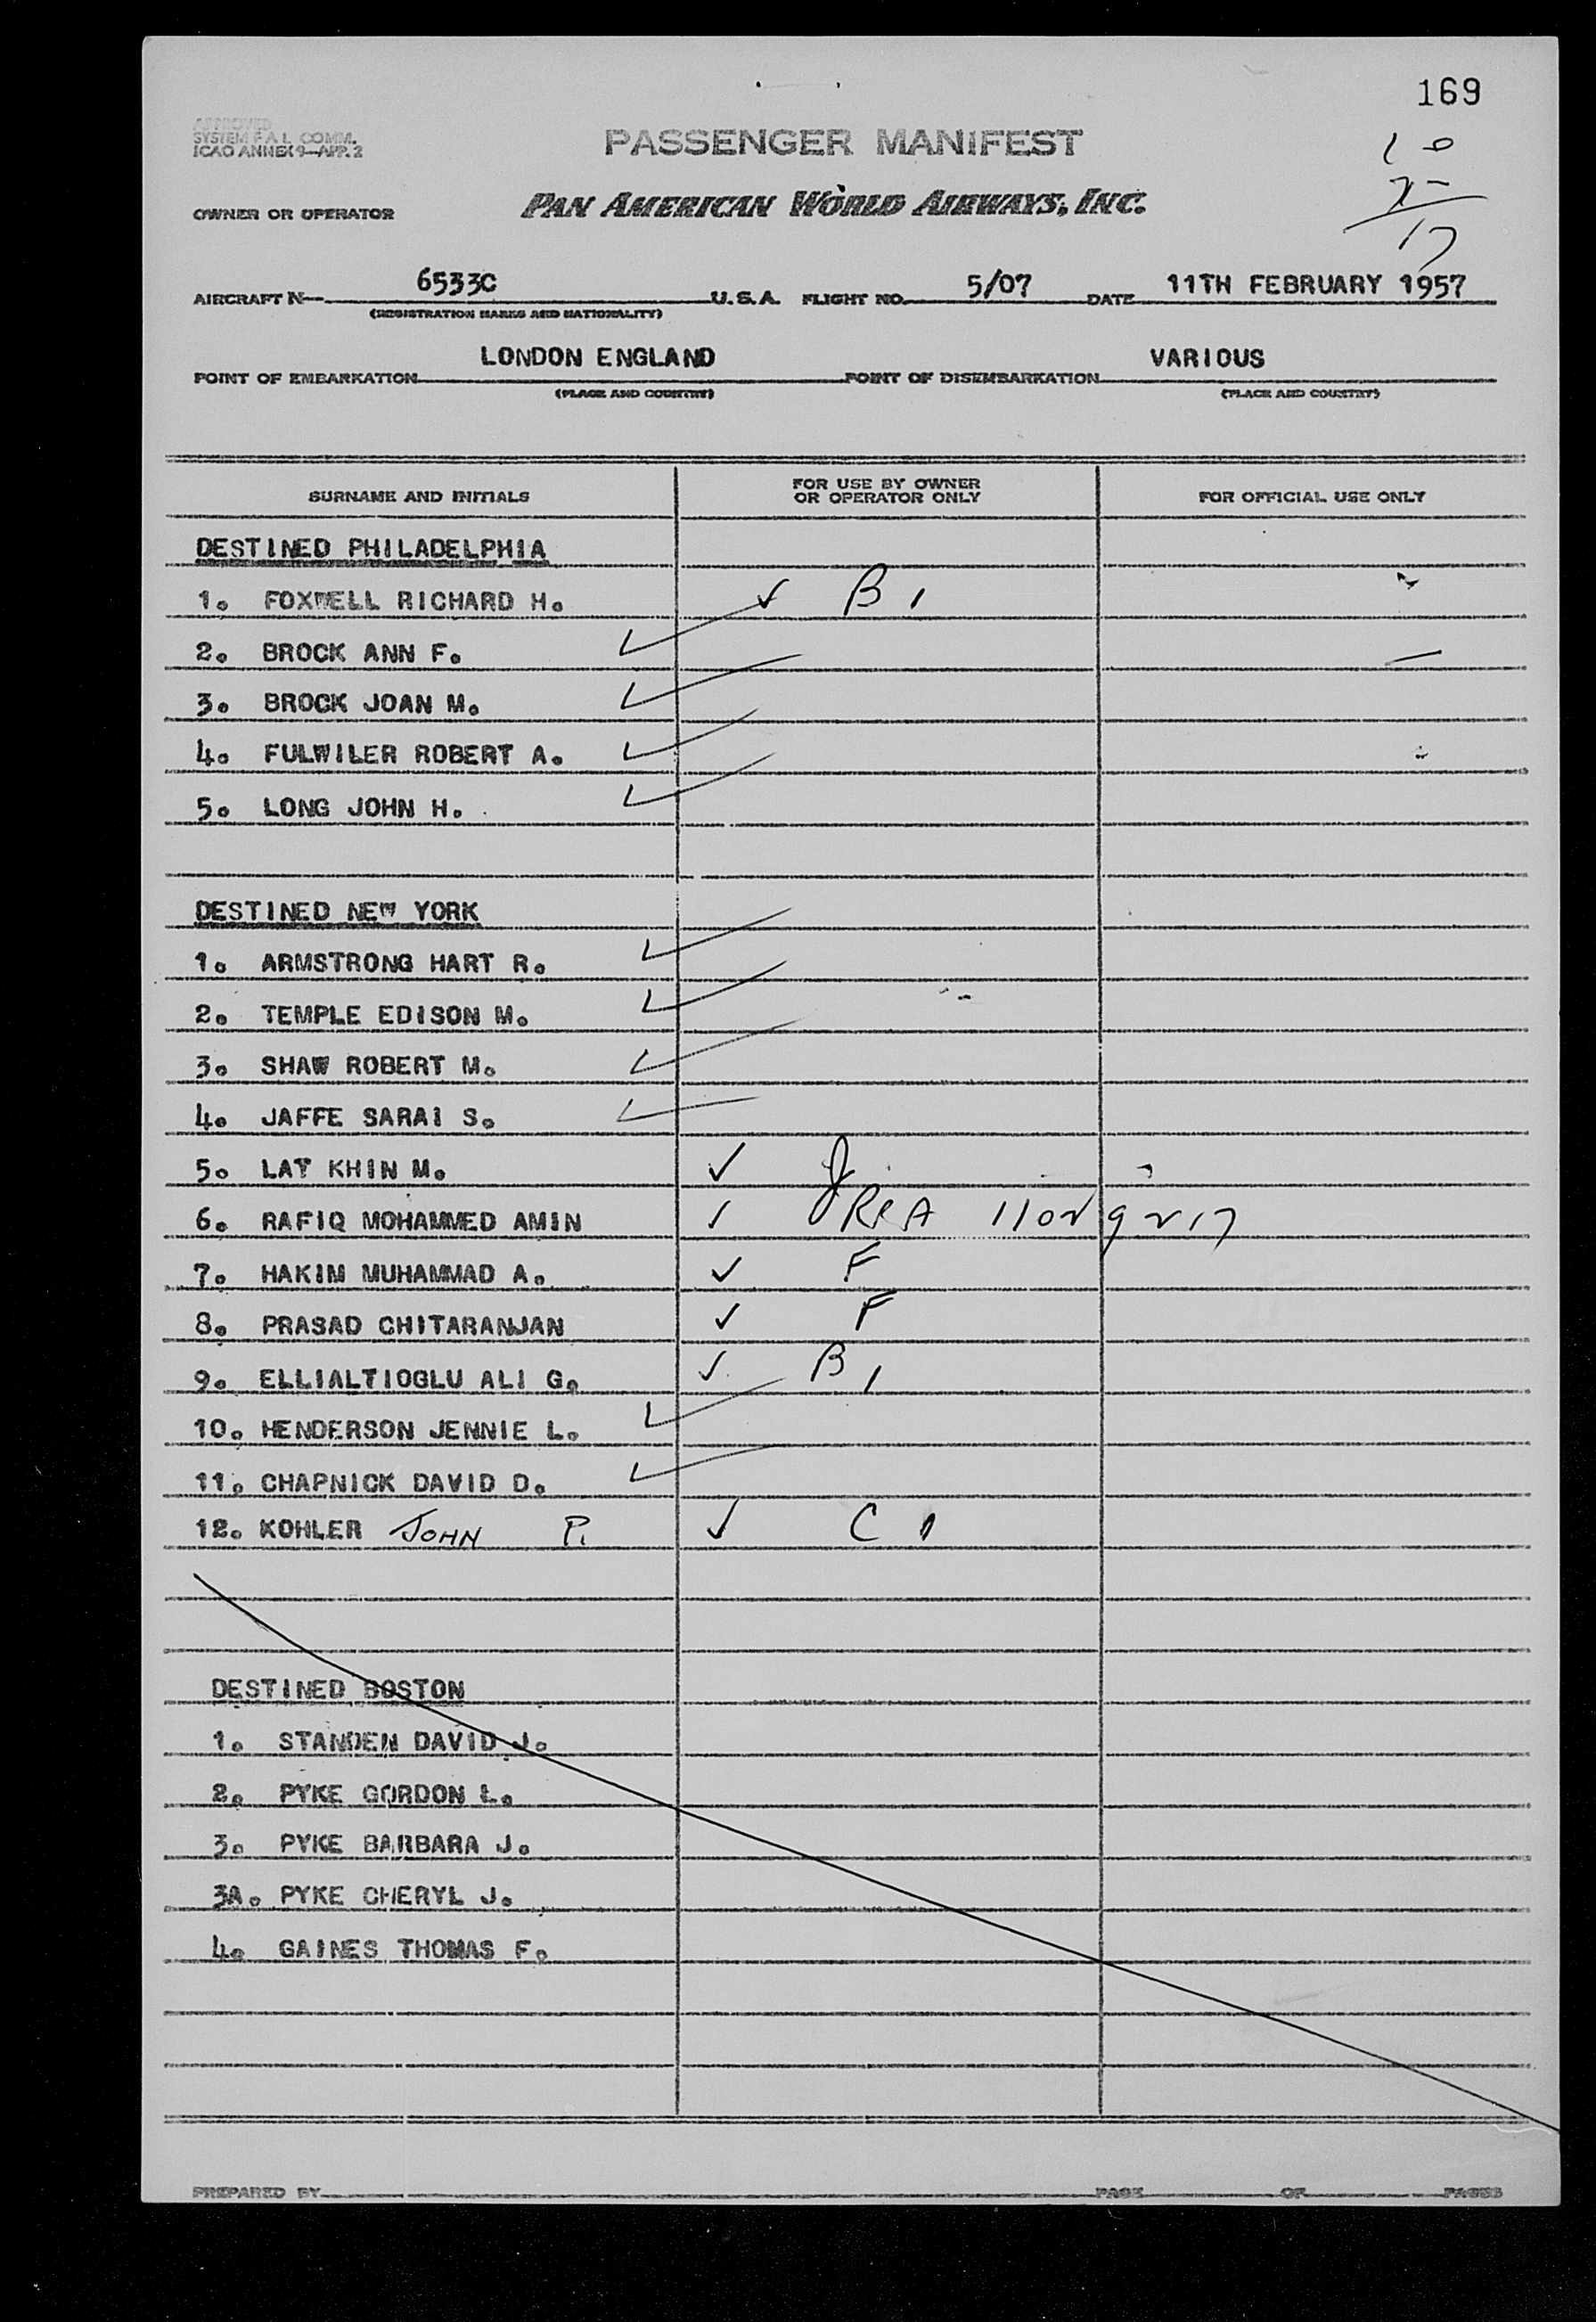 169
APPROVED
SYSTEM F.A.L. COMM.
ICAO ANNEX 9—APP. 2
PASSENGER MANIFEST
10
17
OWNER OR OPERATOR PAN AMERICAN WORLD AIRWAYS, INC.
AIRCRAFT N— 6533C U.S.A. FLIGHT NO. 5/07 DATE 11TH FEBRUARY 1957
(REGISTRATION MARKS AND NATIONALITY)
POINT OF EMBARKATION LONDON ENGLAND POINT OF DISEMBARKATION VARIOUS
(PLACE AND COUNTRY) (PLACE AND COUNTRY)
SURNAME AND INITIALS FOR USE BY OWNER OR OPERATOR ONLY FOR OFFICIAL USE ONLY
DESTINED PHILADELPHIA
1. FOXWELL RICHARD H. ✓ B 1
2. BROCK ANN F. ✓
3. BROCK JOAN M. ✓
4. FULWILER ROBERT A. ✓
5. LONG JOHN H. ✓
DESTINED NEW YORK
1. ARMSTRONG HART R. ✓
2. TEMPLE EDISON M. ✓
3. SHAW ROBERT M. ✓
4. JAFFE SARAI S. ✓
5. LAT KHIN M. ✓
6. RAFIQ MOHAMMED AMIN ✓
7. HAKIM MUHAMMAD A. ✓ F
8. PRASAD CHITARANJAN ✓ F
9. ELLIALTIOGLU ALI G. ✓ B 1
10. HENDERSON JENNIE L. ✓
11. CHAPNICK DAVID D. ✓
12. KOHLER JOHN P. ✓ C 1
DESTINED BOSTON
1. STANDEN DAVID J.
2. PYKE GORDON L.
3. PYKE BARBARA J.
3A. PYKE CHERYL J.
4. GAINES THOMAS F.
PREPARED BY PAGE OF PAGES